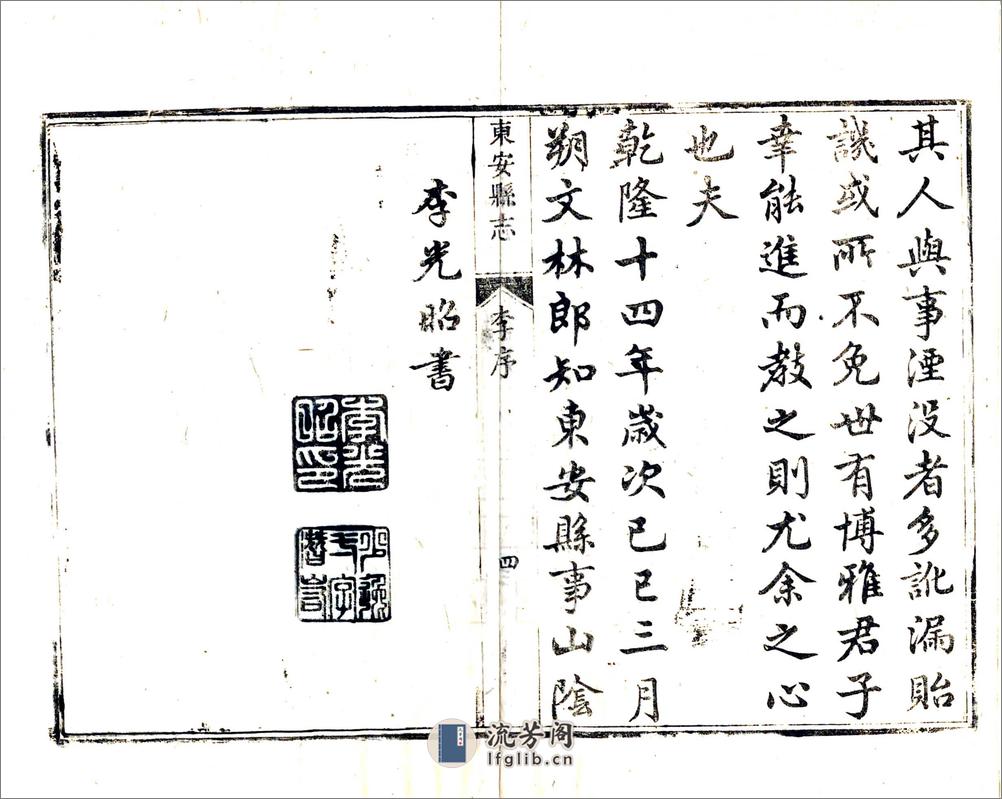 其人與事湮没者多訛漏貽
譏或所不免世有博雅君子
幸能進而教之則尤余之心
也夫
乾隆十四年歲次己巳三月
朔文林郎知東安縣事山陰
東安縣志
李序
四
李光昭書
李光昭印
流芳阁
lfglib.cn